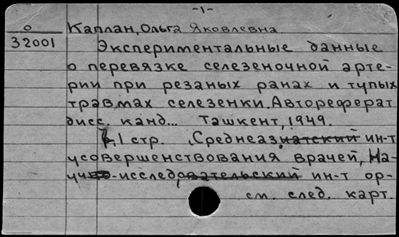 -1-
0 Каплан, Ольга Яковлевна
32001 Экспериментальные данные
о перевязке селезеночной арте-
рии при резаных ранах и тупых
травмах селезенки. Автореферат
дисс. канд... Ташкент, 1949.
1 стр. Среднеазиатский ин-т
усовершенствования врачей, На-
учно-исследовательский ин-т ор-
см. след. карт.